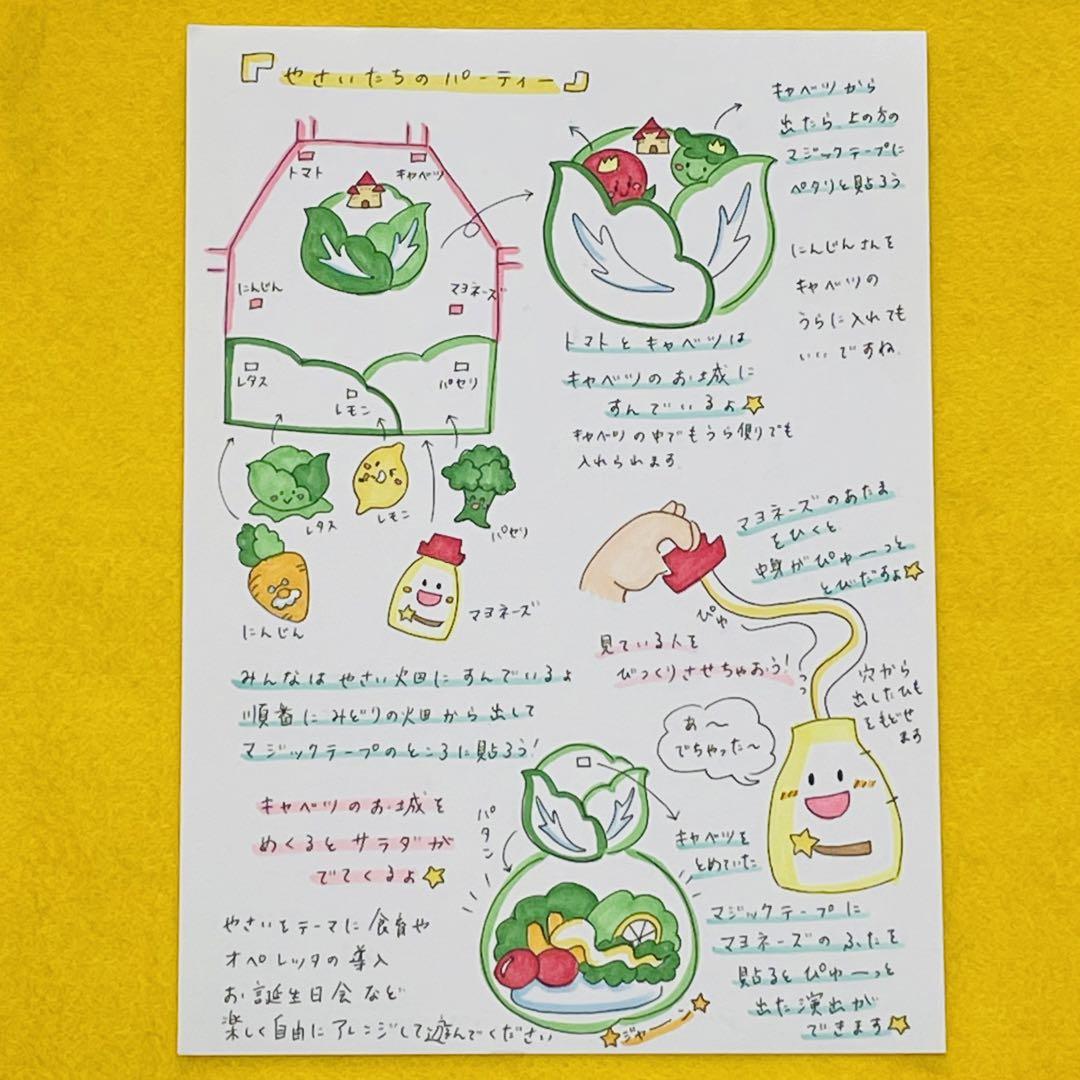 『やさいたちのパーティー』
トマト
キャベツ
にんじん
マヨネーズ
レタス
レモン
パセリ
レタス
レモン
パセリ
にんじん
マヨネーズ
キャベツから
出たら、上の方の
マジックテープに
ペタリと貼ろう
にんじんさんを
キャベツの
うらに入れても
いいですね。
トマトとキャベツは
キャベツのお城に
すんでいるよ
キャベツの中でもうら側りでも
入れられます。
みんなは やさい火田に すんでいるよ
順番に みどりの火田から 出して
マジックテープのところに貼ろう!
マヨネーズのあたま
をひくと
中身がぴゅーっと
とびだすよ
ぴゅ
っっ
見ている人を
びっくりさせちゃおう!
穴から
出したひも
をもどせ
ます
あ〜
でちゃった〜
キャベツのお城を
めくるとサラダが
でてくるよ
パタン
キャベツを
とめていた
マジックテープに
マヨネーズのふたを
貼るとぴゅーっと
出た演出が
できます
ジャーン
やさいをテーマに食育や
オペレッタの導入
お誕生日会など
楽しく自由にアレンジして遊んでください